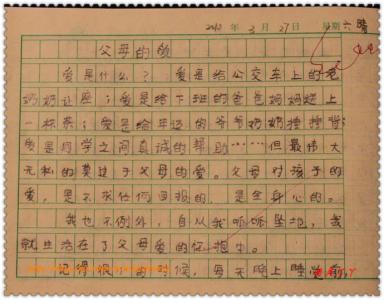 2010年3月27日 星期六 晴
父母的爱
爱是什么？爱是给公交车上的老
奶奶让座；爱是给下班的爸爸妈妈递上
一杯茶；爱是给年迈的爷爷奶奶捶捶背；
爱是同学之间真诚的帮助……但最伟大
无私的莫过于父母的爱。父母对孩子的
爱，是不求任何回报的，是全身心的。
我也不例外，自从我呱呱坠地，我
就生活在了父母爱的怀抱中。
记得很小的时候，每天晚上睡觉前